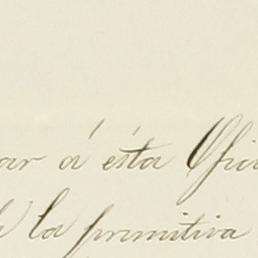 ar á ésta Ofi
la primitiva